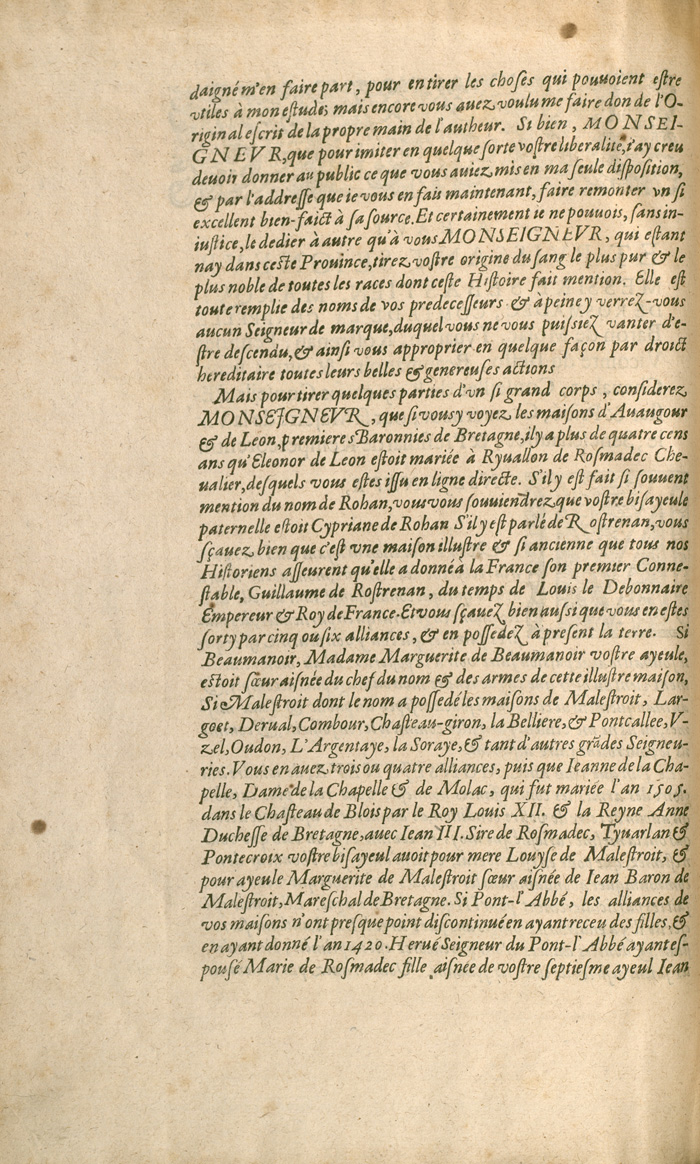 daigné m'en faire part, pour en tirer les choſes qui pouuoient eſtre
vtiles à mon eſtude; mais encore vous auez voulu me faire don de l'O-
riginal eſcrit de la propre main de l'autheur. Si bien, MONSEI-
GNEVR, que pour imiter en quelque ſorte voſtre liberalité, i'ay creu
deuoir donner au public ce que vous auiez, mis en ma ſeule diſpoſition,
& par l'addreſſe que ie vous en fait maintenant, faire remonter vn ſi
excellent bien-faict à ſa ſource. Et certainement ie ne pouuois, ſans in-
iuſtice, le dedier à autre qu'à vous MONSEIGNEVR, qui eſtant
nay dans ceſte Prouince, tirez voſtre origine du ſang le plus pur & le
plus noble de toutes les races dont ceſte Hiſtoire fait mention. Elle eſt
toute remplie des noms de vos predeceſſeurs & à peine y verrez-vous
aucun Seigneur de marque, duquel vous ne vous puiſsiez vanter d'e-
ſtre deſcendu, & ainſi vous approprier en quelque façon par droict
hereditaire toutes leurs belles & genereuſes actions
Mais pour tirer quelques parties d'vn ſi grand corps, conſiderez
MONSEIGNEVR, que ſi vous y voyez les maiſons d'Auaugour
& de Leon, premieres Baronnies de Bretagne, il y a plus de quatre cens
ans qu'Eleonor de Leon eſtoit mariée à Ryuallon de Roſmadec Che-
ualier, deſquels vous eſtes iſſu en ligne directe. S'il y eſt fait ſi ſouuent
mention du nom de Rohan, vous vous ſouuiendrez, que voſtre biſayeule
paternelle eſtoit Cypriane de Rohan S'il y eſt parlé de Roſtrenan, vous
ſçauez bien que c'eſt vne maiſon illuſtre & ſi ancienne que tous nos
Hiſtoriens aſſeurent qu'elle a donné à la France ſon premier Conne-
ſtable, Guillaume de Roſtrenan, du temps de Louis le Debonnaire
Empereur & Roy de France. Et vous ſçauez bien auſsi que vous en eſtes
ſorty par cinq ou ſix alliances, & en poſſedez à preſent la terre. Si
Beaumanoir, Madame Marguerite de Beaumanoir voſtre ayeule,
eſtoit ſœur aiſnée du chef du nom & des armes de cette illuſtre maiſon,
Si Maleſtroit dont le nom a poſſedé les maiſons de Maleſtroit, Lar-
goet, Derual, Combour, Chaſteau-giron, la Belliere, & Pontcallee, V-
zel, Oudon, L'Argentaye, la Soraye, & tant d'autres grãdes Seigneu-
ries. Vous en auez trois ou quatre alliances, puis que Ieanne de la Cha-
pelle, Dame de la Chapelle & de Molac, qui fut mariée l'an 1505.
dans le Chaſteau de Blois par le Roy Louis XII. & la Reyne Anne
Ducheſſe de Bretagne, auec Iean III. Sire de Roſmadec, Tyuarlan &
Pontecroix voſtre biſayeul auoit pour mere Louyſe de Maleſtroit, &
pour ayeule Marguerite de Maleſtroit ſœur aiſnée de Iean Baron de
Maleſtroit, Mareſchal de Bretagne. Si Pont-l'Abbé, les alliances de
vos maiſons n'ont preſque point diſcontinué en ayant receu des filles, &
en ayant donné l'an 1420. Herué Seigneur du Pont-l'Abbé ayant eſ-
pouſé Marie de Roſmadec fille aiſnée de voſtre ſeptieſme ayeul Iean